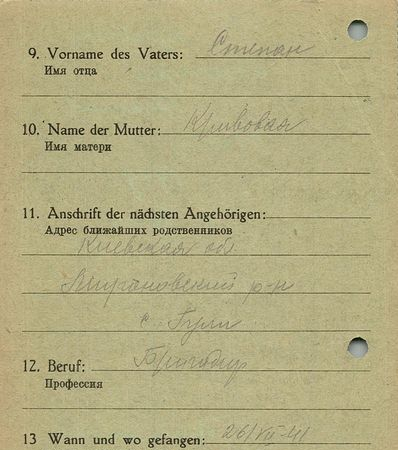 9. Vorname des Vaters: Степан
Имя отца
10. Name der Mutter: Кривовая
Имя матери
11. Anschrift der nächsten Angehörigen:
Адрес ближайших родственников
Киевская об.
р-н
с.
12. Beruf: Бригадир
Профессия
13 Wann und wo gefangen: 26/VII-41